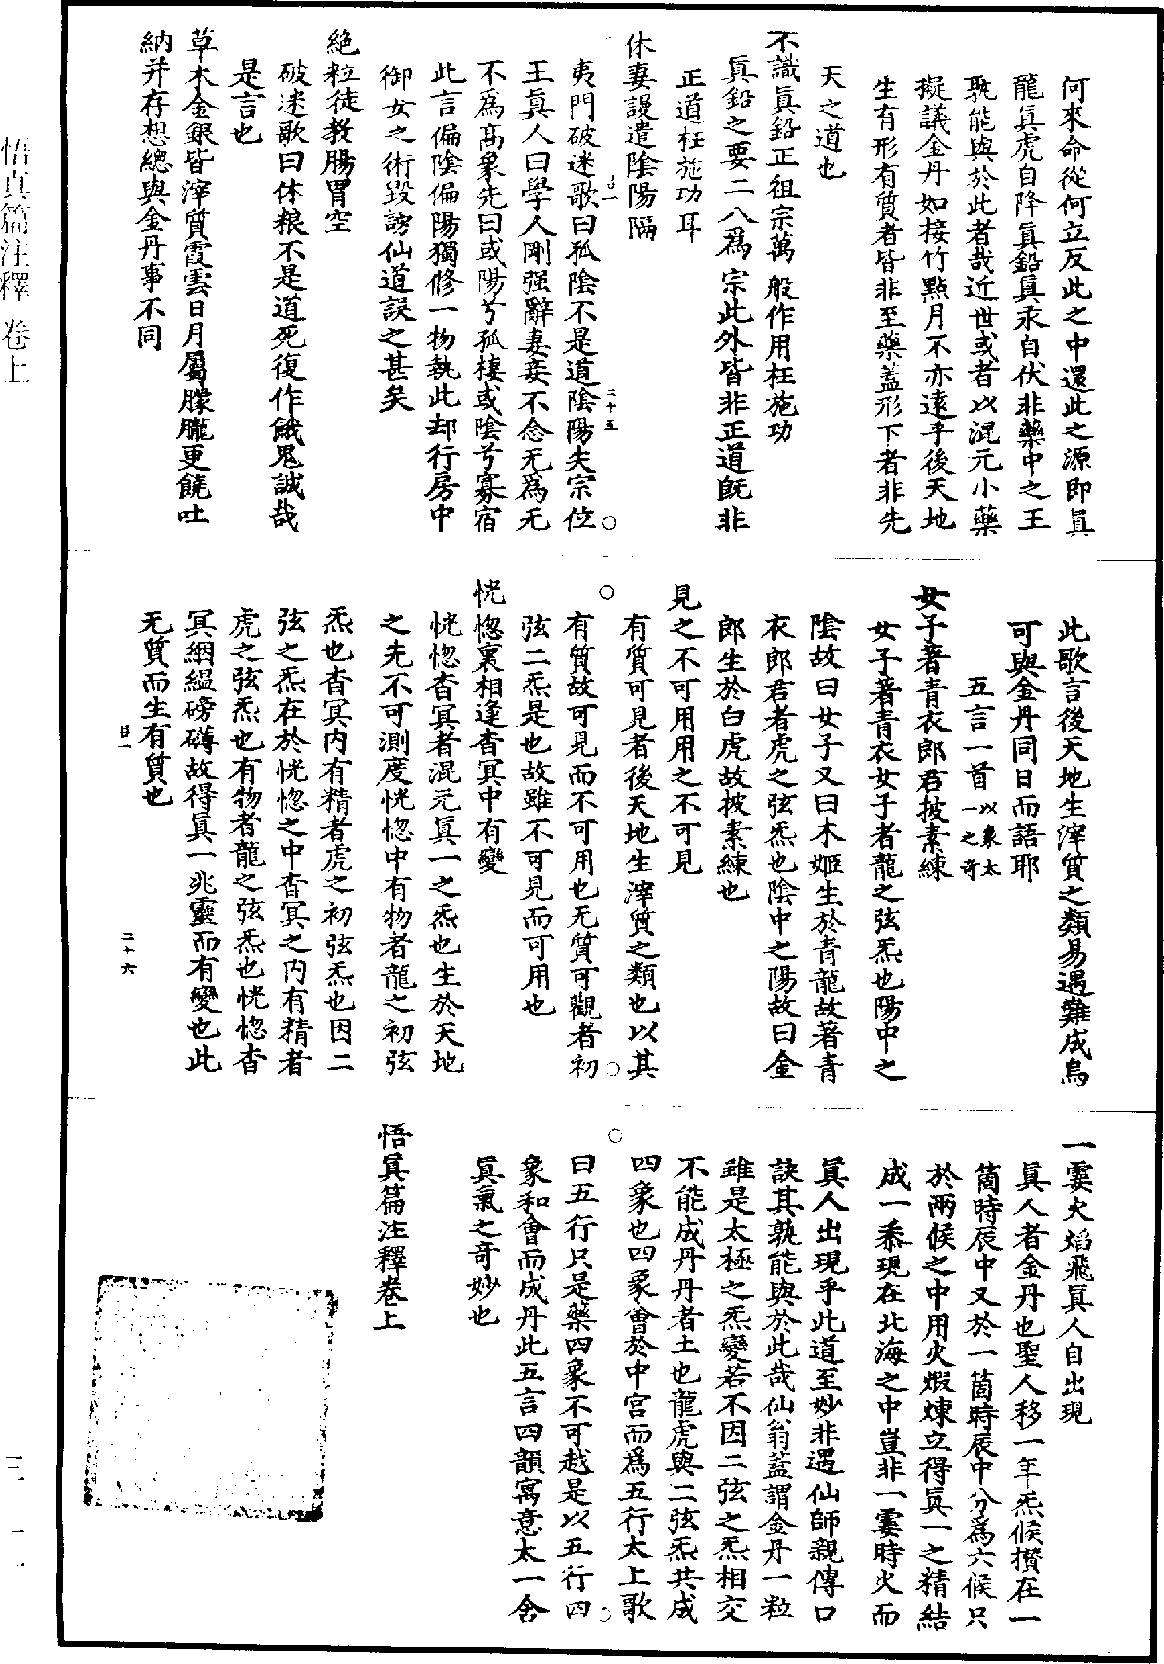 何來命從何立反此之中還此之源即眞
龍眞虎自降眞鉛眞汞自伏非藥中之王
孰能與於此者哉近世或者以混元小藥
擬議金丹如接竹點月不亦遠乎後天地
生有形有質者皆非至藥蓋形下者非先
天之道也
不識眞鉛正祖宗萬般作用枉施功
眞鉛之要二八爲宗此外皆非正道旣非
正道枉施功耳
休妻謾遣陰陽隔
夷門破迷歌曰孤陰不是道陰陽夫宗位
王眞人曰學人剛强辭妻妾不念无爲无
不爲髙象先曰或陽兮孤棲或陰兮寡宿
此言偏陰偏陽獨修一物執此却行房中
御女之術毀謗仙道誤之甚矣
絶粒徒教腸胃空
破迷歌曰休粮不是道死復作餓鬼誠哉
是言也
草木金銀皆滓質霞雲日月屬朦朧更饒吐
納并存想總與金丹事不同
二十五
此歌言後天地生滓質之類易遇難成烏
可與金丹同日而語耶
五言一首以象太一之奇
女子著青衣郎君披素練
女子著青衣女子者龍之弦炁也陽中之
陰故曰女子又曰木姬生於青龍故著青
衣郎君者虎之弦炁也陰中之陽故曰金
郎生於白虎故披素練也
見之不可用用之不可見
有質可見者後天地生滓質之類也以其
有質故可見而不可用也无質可觀者初
弦二炁是也故雖不可見而可用也
恍惚裏相逢杳冥中有變
恍惚杳冥者混元眞一之炁也生於天地
之先不可測度恍惚中有物者龍之初弦
炁也杳冥内有精者虎之初弦炁也因二
弦之炁在於恍惚之中杳冥之内有精者
虎之弦炁也有物者龍之弦炁也恍惚杳
冥絪縕磅礴故得眞一兆靈而有變也此
无質而生有質也
二十六
一霎火焰飛眞人自出現
眞人者金丹也聖人移一年炁候攢在一
箇時辰中又於一箇時辰中分爲六候只
於兩候之中用火煅煉立得眞一之精結
成一黍現在北海之中豈非一霎時火而
眞人出現乎此道至妙非遇仙師親傳口
訣其孰能與於此哉仙翁蓋謂金丹一粒
雖是太極之炁變若不因二弦之炁相交
不能成丹丹者土也龍虎與二弦炁共成
四象也四象會於中宫而爲五行太上歌
曰五行只是藥四象不可越是以五行四
象和會而成丹此五言四韻寓意太一含
眞氣之奇妙也
悟眞篇注釋卷上
悟真篇注釋 卷上